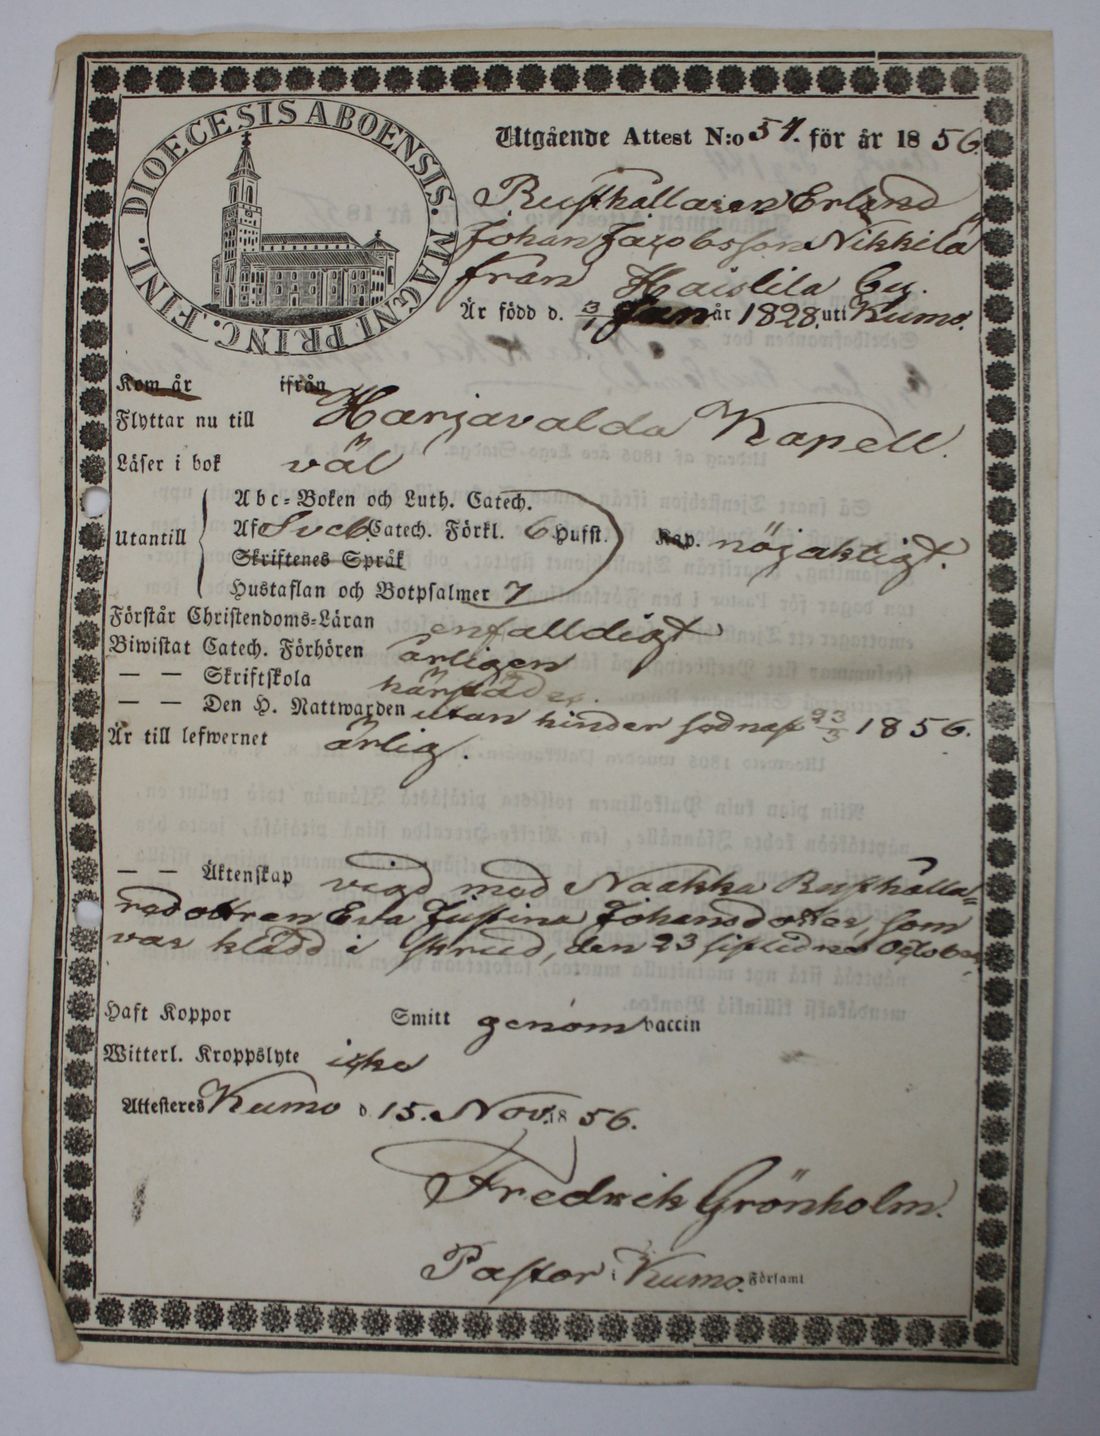 DIOECESIS ABOENSIS. MAGNI. PRINC. FINL.
Utgående Attest N:o 57. för år 1856.
Rusthållaren Erland
Johan Jacobsson Nikkilä
från Haistila by.
Är född d. 3/1 Jan år 1828. uti Kumo.
Kom år ifrån
Flyttar nu till Harjavalda Kapell.
Läser i bok väl
Abc-Boken och Luth. Catech.
Utantill Af Sveb. Catech. Förkl. 6 Hufst. Kap. nöjaktigt.
Skriftenes Språk
Hustaflan och Botpsalmer 7
Förstår Christendoms-Läran enfalldigt
Biwistat Catech. Förhören årligen
— — Skriftskola härstädes.
— — Den H. Nattwarden utan hinder sednast 23/3 1856.
Är till lefwernet ärlig.
— — Äktenskap vigd med Naakka Rusthålla=
redottren Eva Justina Johansdotter, som
var klädd i skrud, den 23 sistledne October.
Haft Koppor Smitt genom vaccin
Witterl. Kroppslyte icke
Attesteres Kumo d 15. Nov. 1856.
Fredrik Grönholm.
Pastor i Kumo. Församl